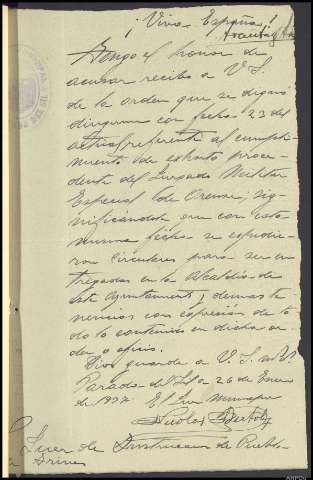 ¡Viva España!
Tengo el honor de
acusar recibo a V.S.
de la orden que se dignó
dirigirme con fecha 23 del
actual referente al cumpli-
miento de exhorto proce-
dente del Juzgado Militar
Especial de Orense, sig-
nificándole que con esta
misma fecha se expidie-
ron circulares para ser en-
tregadas en la Alcaldía de
este Ayuntamiento, y demas te-
nencias con expresión de to-
do lo contenido en dicha or-
den u oficio.
Dios guarde a V.S. m
Parada del Sil a 26 de Enero
de 1937 El Juez municipal
Nicolas
Sr. Juez de Instruccion de Puebla
Trives